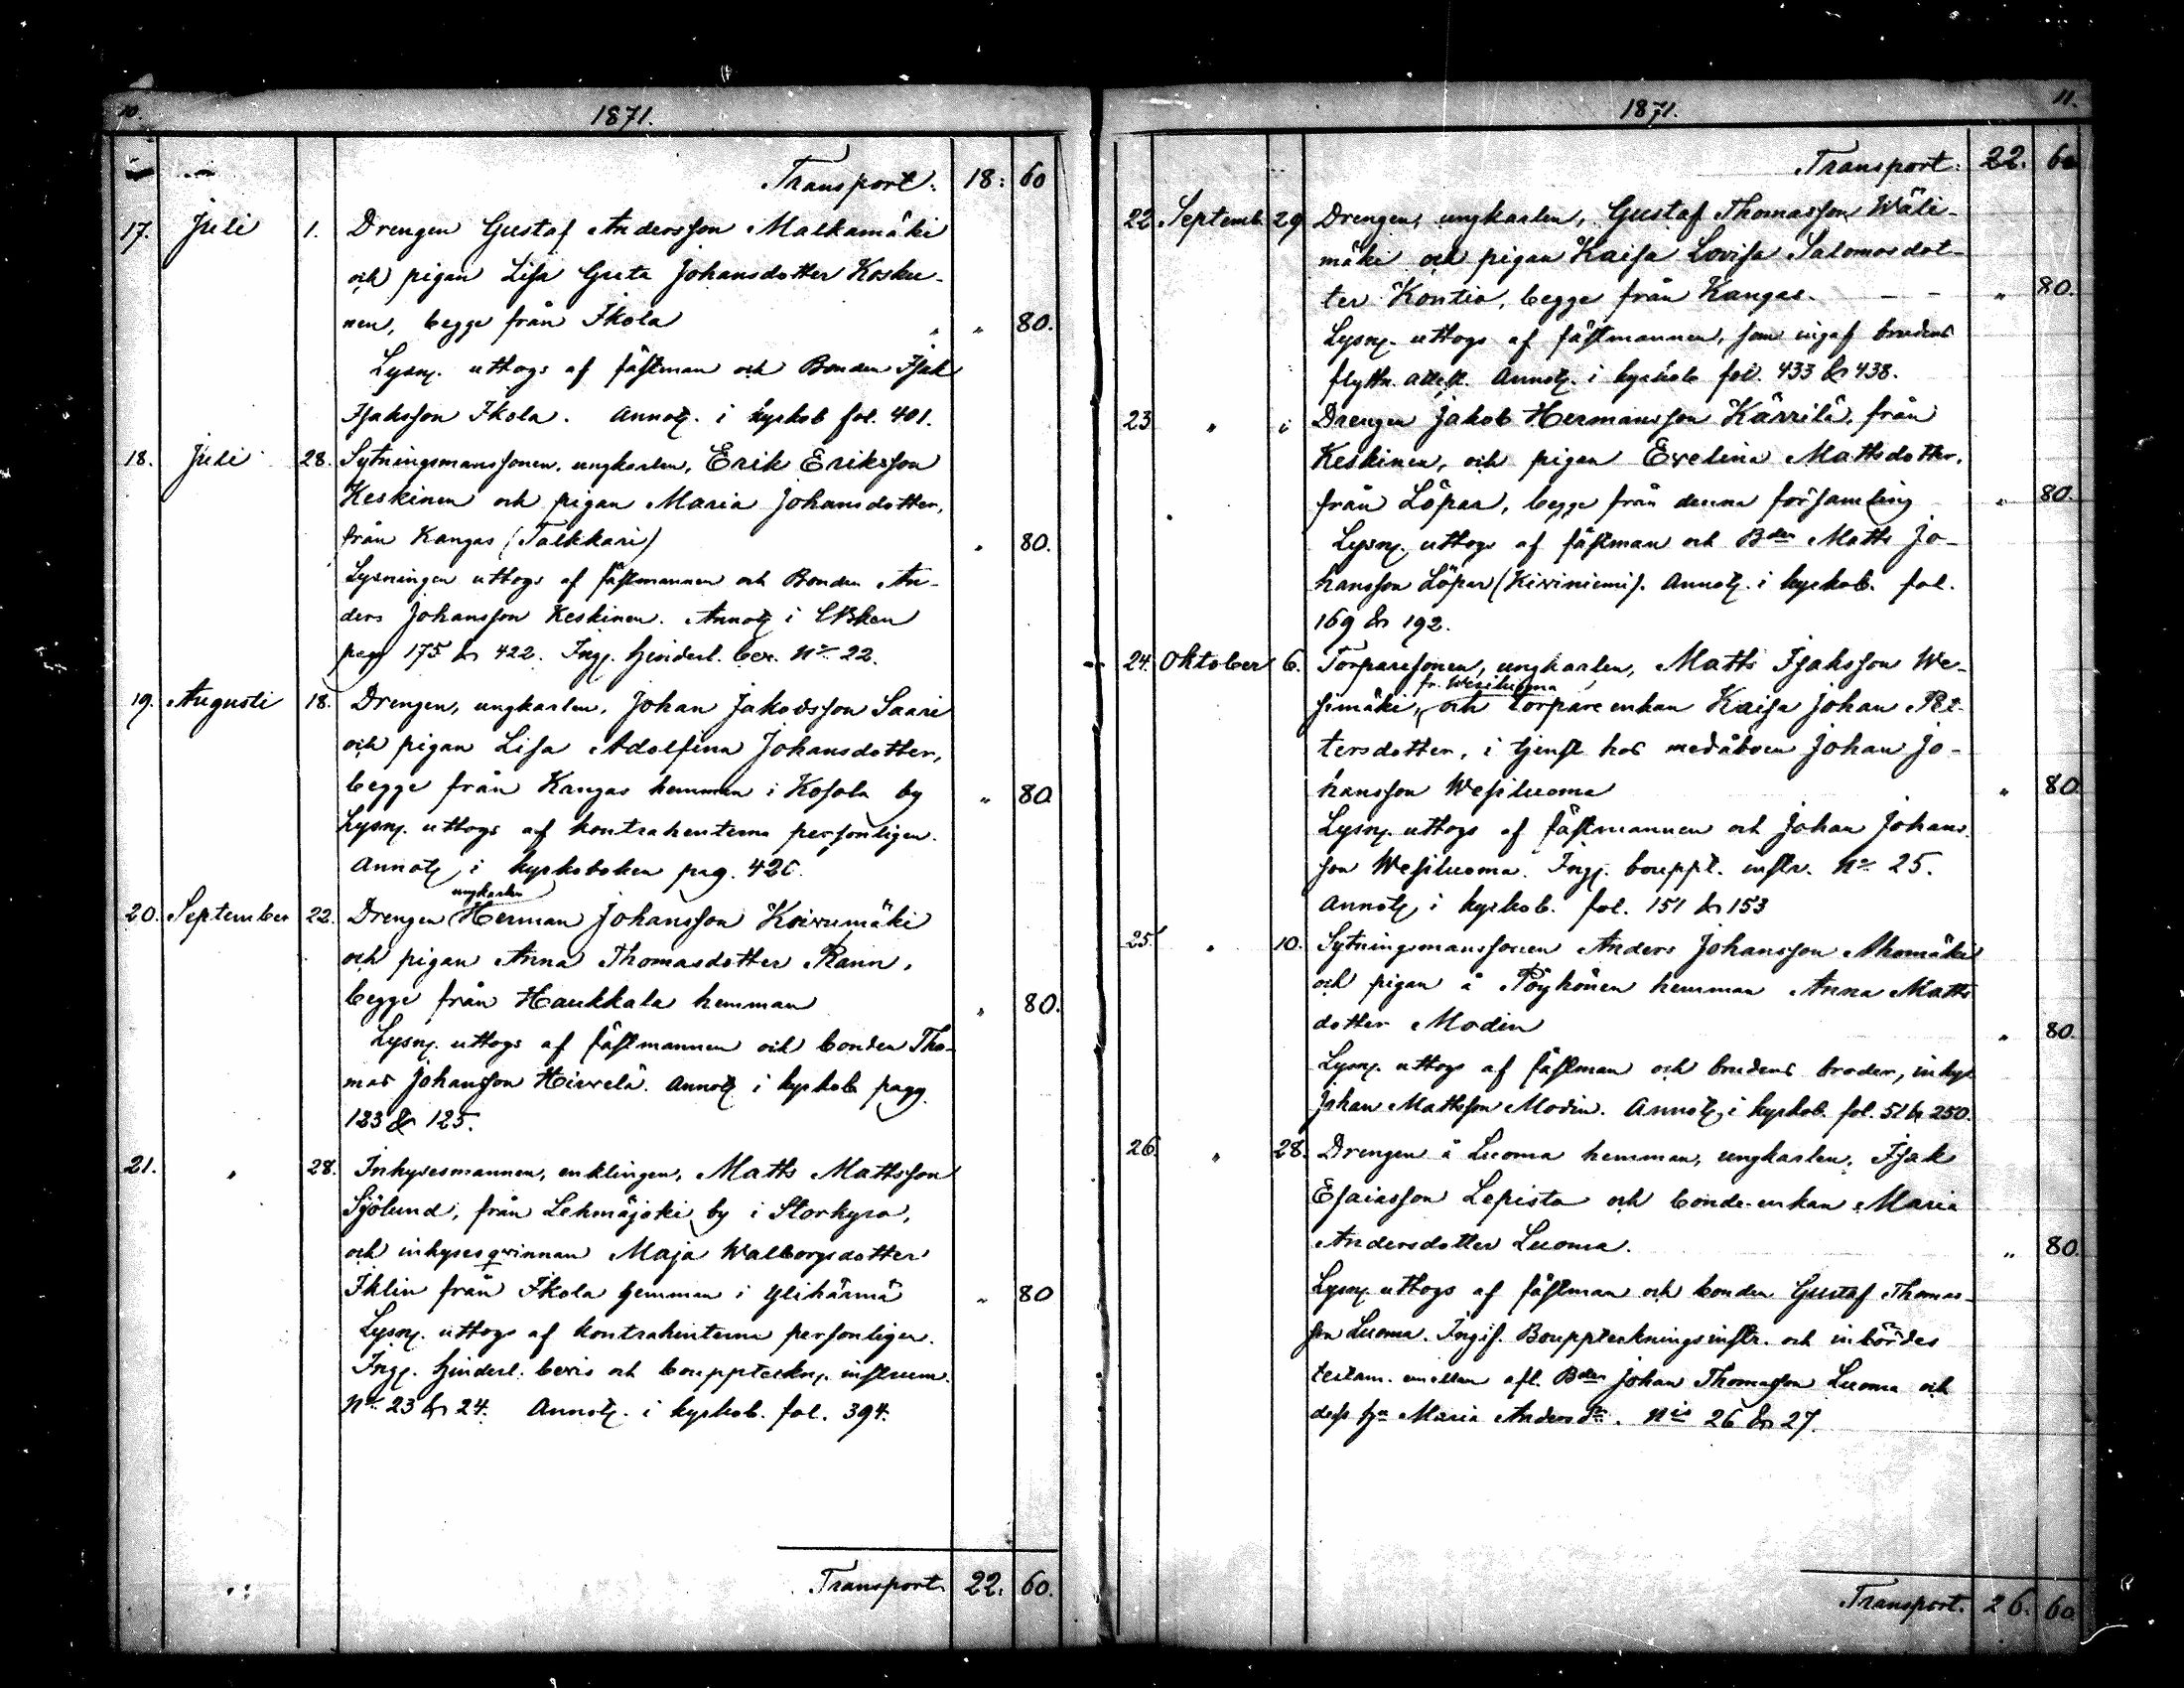 10.
1871.
Transport. 18: 60
17. Juli 1. Drengen Gustaf Andersson Malkamäki
och pigan Lisa Greta Johansdotter Kosku-
nen, begge från Ikola " " 80.
Lysng. uttogs af fästman och Bonden Isak
Isaksson Ikola. Annotg. i kyrkob fol. 401.
18. Juli 28. Sytningsmanssonen, ungkarlen, Erik Eriksson
Keskinen och pigan Maria Johansdotter,
från Kangas (Talkkari) " 80.
Lysningen uttogs af fästmannen och Bonden An-
ders Johansson Keskinen. Annotg i
pag 175 & 422. Ingg. hinderl. bev. No 22.
19. Augusti 18. Drengen, ungkarlen, Johan Jakobsson Saari
och pigan Lisa Adolfina Johansdotter,
begge från Kangas hemman i Kosola by " 80
Lysng. uttogs af kontrahenterna personligen.
Annotg i kyrkoboken pag.
ungkarlen
20. September 22. Drengen Herman Johansson Koivumäki
och pigan Anna Thomasdotter Rann,
begge från Haukkala hemman " 80.
Lysng. uttogs af fästmannen och bonden Tho-
mas Johansson Hirvelä. Annotg i kyrkob pagg.
123 & 125.
21. " 28. Inhysesmannen, enklingen, Matts Mattsson
Sjölund, från Lehmäjoki by i Storkyro,
och inhyseqvinnan Maja Walborgsdotter
Iklin från Ikola hemman i Ylihärmä " 80
Lysng. uttogs af kontrahenterna personligen.
Ingg. hinderl. bevis och bouppteckng. instrum.
No 23 & 24. Annotg. i kyrkob. fol. 394.
Transport. 22. 60.
11.
1871.
Transport. 22. 60
22 Septemb. 29 Drengen, ungkarlen, Gustaf Thomasson Wäli-
mäki och pigan Kaisa Lovisa Salomosdot-
ter Kontio, begge från Kangas. - - " 80.
Lysng. uttogs af fästmannen, som ingaf brudens
flyttn. attest. Annotg. i kyrkob fol. 433 & 438.
23 " " Drengen Jakob Hermansson Kärrilä, från
Keskinen, och pigan Evelina Mattsdotter,
från Löpar, begge från denna församling " 80.
Lysng. uttogs af fästman och Bden Matts Jo-
hansson Löpar (Kiviniemi). Annotg. i kyrkob. fol.
169 & 192.
24. Oktober 6. Torparesonen, ungkarlen, Matts Isaksson We-
fr. Wesiluoma
simäki, och torpare enkan Kaisa Johan Pet-
tersdotter, i tjenst hos medåboen Johan Jo-
hansson Wesiluoma " 80
Lysng. uttogs af fästmannen och Johan Johans-
son Wesiluoma. Ingg. bouppt. instr. No 25.
Annotg i kyrkob. fol. 151 & 153
25. " 10. Sytningsmanssonen Anders Johansson Ahomäki
och pigan å Pöyhönen hemman Anna Matts
dotter Modin " 80.
Lysng. uttogs af fästman och brudens broder, inhys.
Johan Mattsson Modin. Annotg i kyrkob. fol. 51 & 250.
26. " 28. Drengen å Luoma hemman, ungkarlen, Isak
Esaiasson Lepisto och bonde-enkan Maria
Andersdotter Luoma. " 80.
Lysng. uttogs af fästman och bonden Gustaf Thomas-
son Luoma. Ingif. Bouppteckningsinstr. och inbördes
testam. emellan afl. Bden Johan Thomasson Luoma och
dess h:u Maria Andersdr. Nis 26 & 27.
Transport. 26. 60